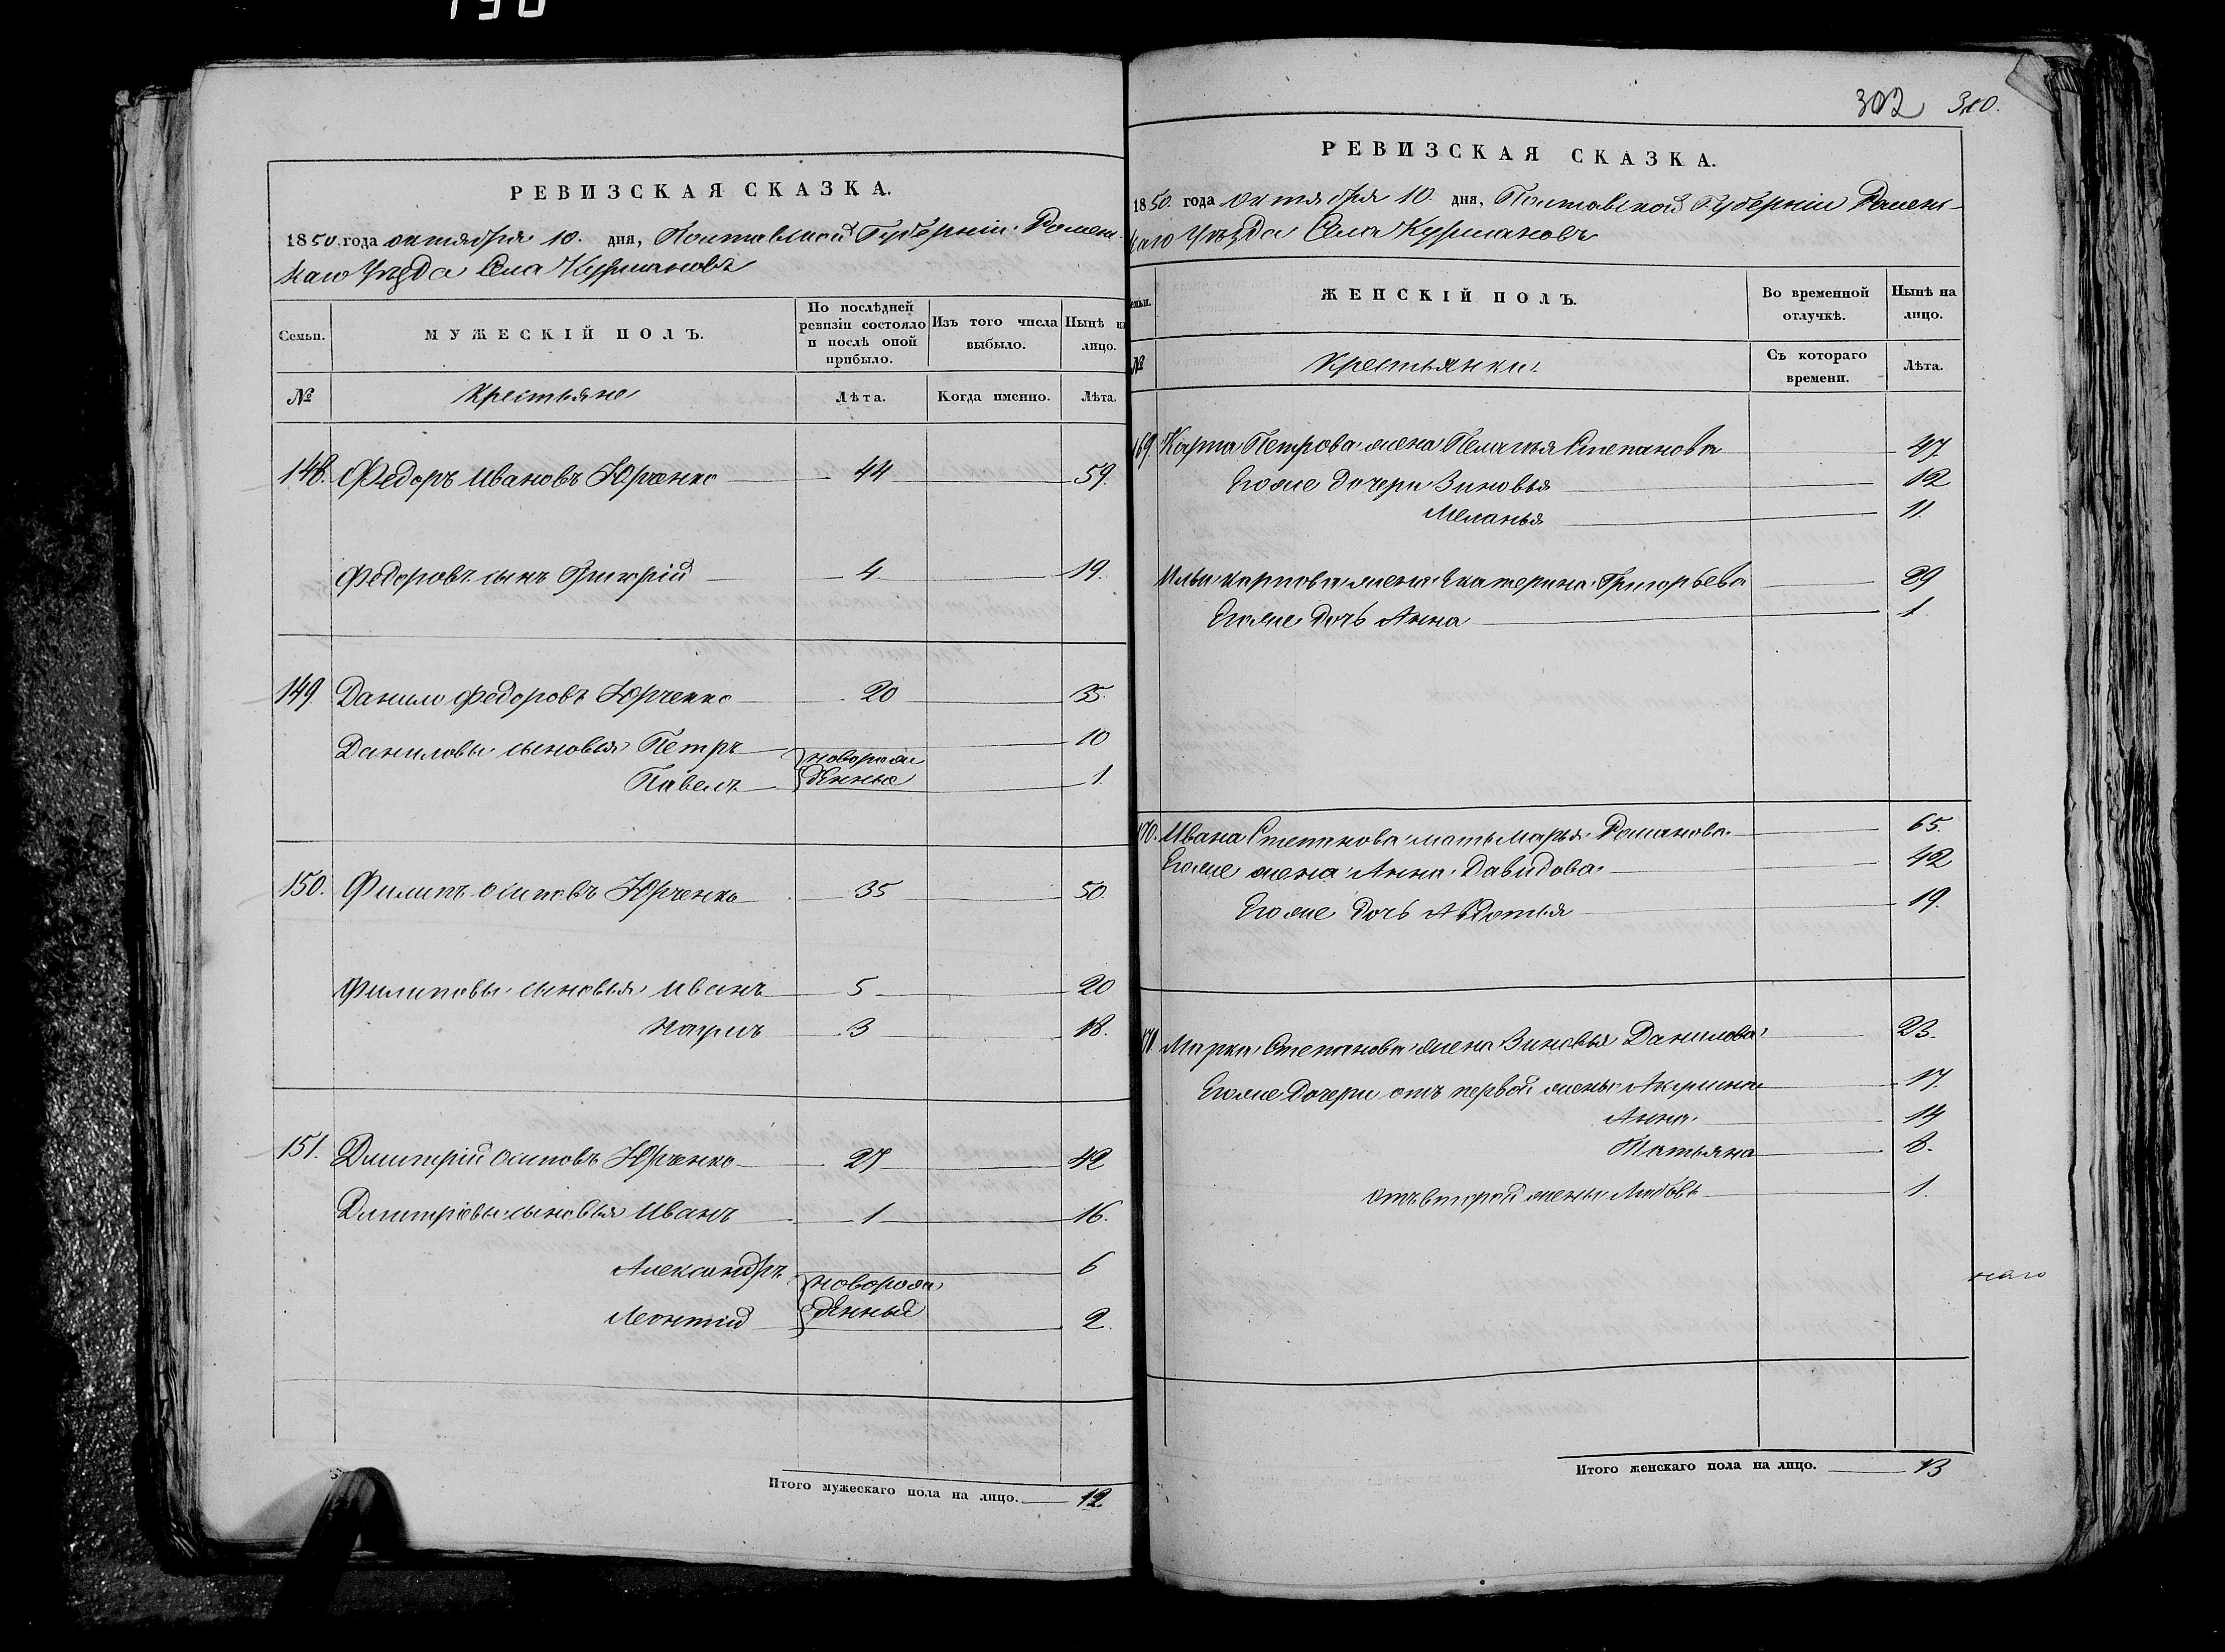 РЕВИЗСКАЯ СКАЗКА.
1850. года октября 10. дня, Полтавской Губерніи Ромен-
скаго Уѣзда Села Курмановъ
Семьи.
МУЖЕСКІЙ ПОЛЪ.
По послѣдней ревизіи состояло и послѣ оной прибыло.
Изъ того числа выбыло.
Нынѣ на лицо.
№
Крестьяне
Лѣта.
Когда именно.
Лѣта.
148. Федоръ Ивановъ Юрченко 44 59.
Федоровъ сынъ Дмитрій 4 19.
149. Данило Федоровъ Юрченко 20 35.
Даниловы сыновья Петръ 10
новорож
Павелъ денные 1.
150. Филипъ Осиповъ Юрченко 35 50.
Филиповы сыновья Иванъ 5 20
Наумъ 3 18.
151. Дмитрій Осиповъ Юрченко 27 42
Дмитріевы сыновья Иванъ 1 16.
Александръ 6
новорож
денные
Леонтий 2.
Итого мужескаго пола на лицо. 12
302 310.
РЕВИЗСКАЯ СКАЗКА.
1850. года октября 10. дня, Полтавской Губерніи Ромен-
скаго Уѣзда Села Курмановъ
ЖЕНСКІЙ ПОЛЪ.
Во временной отлучкѣ.
Нынѣ на лицо.
№
Крестьянки
Съ котораго времени.
Лѣта.
169. Карпа Петрова жена Пелагѣя Степанова 47
Егоже дочери Зиновья 12
Меланья 11
Ильи Карпова жена Екатерина Григорьева 29
Егоже дочь Анна 1.
170. Ивана Степанова мать Марья Романова 65.
Егоже жена Анна Давидова 42
Егоже дочь Авдотья 19.
171 Марка Степанова жена Зиновья Данилова 23.
Егоже дочери отъ первой жены Акулина 17.
Анна 14
Татьяна 8.
отъ второй жены Любовь 1.
Итого женскаго пола на лицо. 13